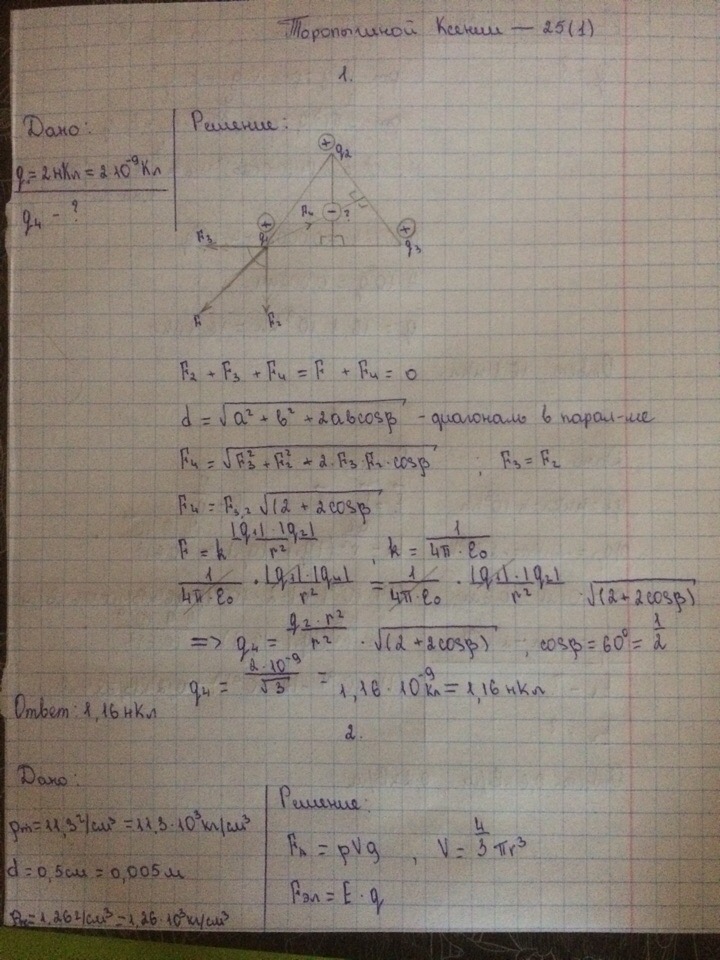 Торопыгиной Ксении — 25(1)
1.
Дано:
q₁ = 2нКл = 2·10⁻⁹ Кл
q₄ - ?
Решение:
+ q₂
F₄ − ?
+ q₁
+ q₃
F₃
F F₂
F₂ + F₃ + F₄ = F + F₄ = 0
d = √(a² + b² + 2abcosβ) - диагональ в парал-ме
F₄ = √(F₃² + F₂² + 2·F₃·F₂·cosβ) ; F₃ = F₂
F₄ = F₃,₂ √(2 + 2cosβ)
F = k |q₁|·|q₂| / r² , k = 1 / 4π·ε₀
1 / 4π·ε₀ · |q₁|·|q₄| / r² = 1 / 4π·ε₀ · |q₁|·|q₂| / r² · √(2+2cosβ)
=> q₄ = q₂·r² / r² · √(2+2cosβ) ; cosβ = 60⁰ = 1/2
q₄ = 2·10⁻⁹ / √3 = 1,16·10⁻⁹ Кл = 1,16 нКл
Ответ: 1,16 нКл
2.
Дано:
ρт = 11,3 г/см³ = 11,3·10³ кг/см³
d = 0,5 см = 0,005 м
ρж = 1,26 г/см³ = 1,26·10³ кг/см³
Решение:
Fₐ = ρVg , V = 4/3 πr³
Fэл = E·q